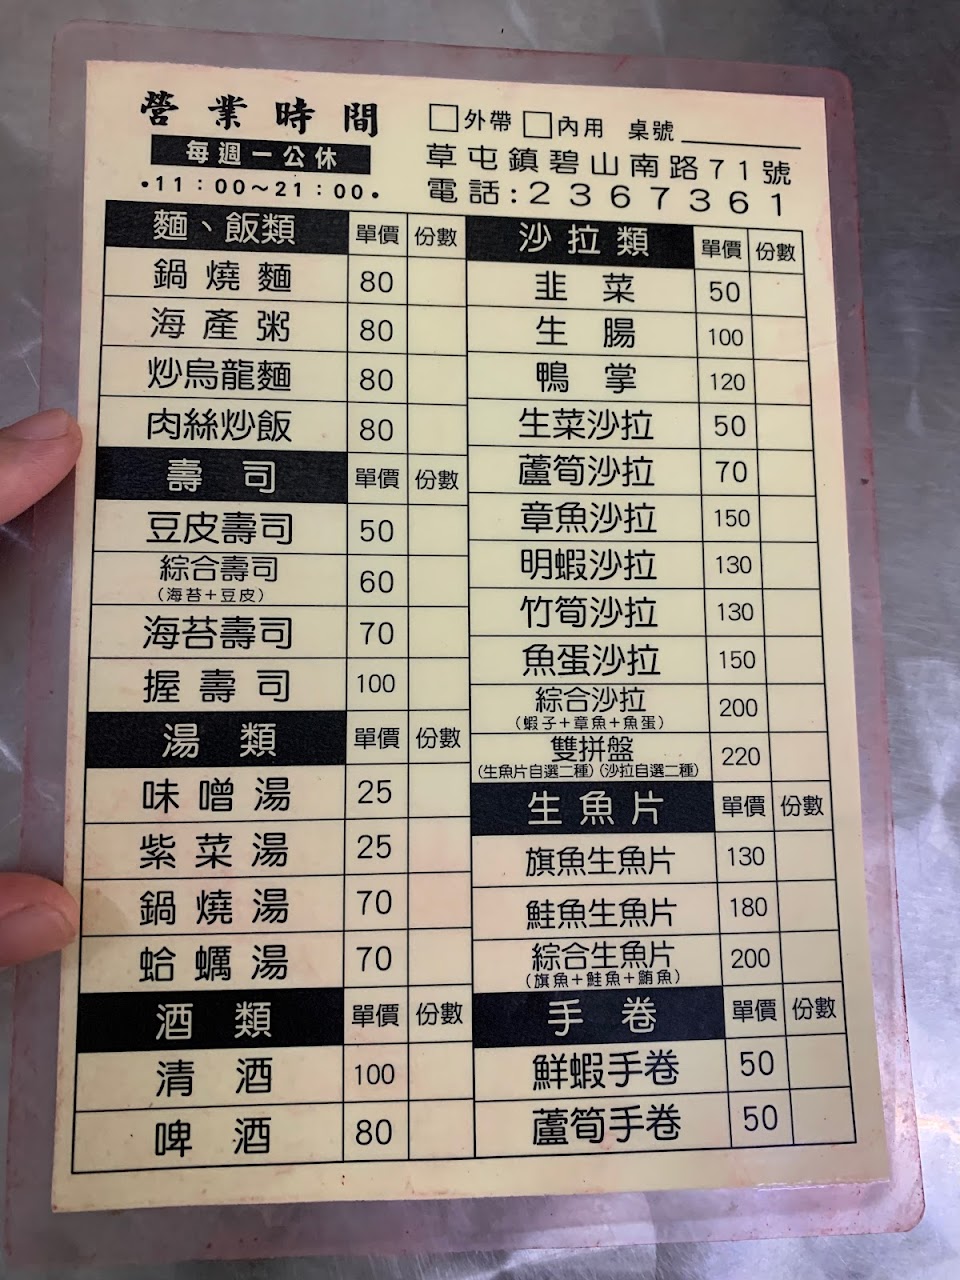 營業時間
每週一公休
•11：00～21：00•
□外帶 □內用 桌號
草屯鎮碧山南路71號
電話:2367361
麵、飯類 單價 份數
鍋燒麵 80
海產粥 80
炒烏龍麵 80
肉絲炒飯 80
壽司 單價 份數
豆皮壽司 50
綜合壽司 60
(海苔+豆皮)
海苔壽司 70
握壽司 100
湯類 單價 份數
味噌湯 25
紫菜湯 25
鍋燒湯 70
蛤蠣湯 70
酒類 單價 份數
清酒 100
啤酒 80
沙拉類 單價 份數
韭菜 50
生腸 100
鴨掌 120
生菜沙拉 50
蘆筍沙拉 70
章魚沙拉 150
明蝦沙拉 130
竹筍沙拉 130
魚蛋沙拉 150
綜合沙拉 200
(蝦子+章魚+魚蛋)
雙拼盤 220
(生魚片自選二種)(沙拉自選二種)
生魚片 單價 份數
旗魚生魚片 130
鮭魚生魚片 180
綜合生魚片 200
(旗魚+鮭魚+鮪魚)
手卷 單價 份數
鮮蝦手卷 50
蘆筍手卷 50